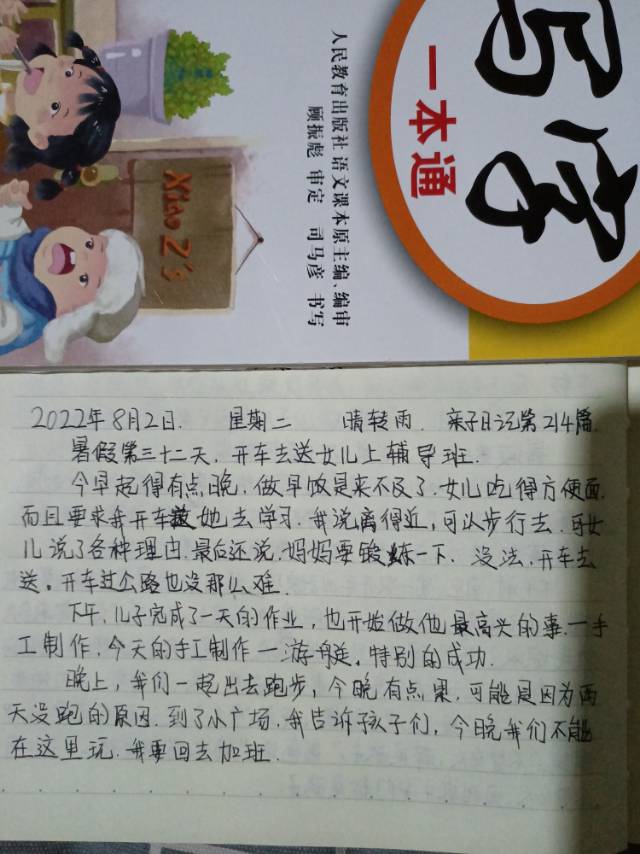 写字
一本通
人民教育出版社 语文课本原主编、编审
顾振彪 审定 司马彦 书写
Xiao Z's
2022年8月2日. 星期二 晴转雨. 亲子日记第214篇.
暑假第三十二天. 开车去送女儿上辅导班.
今早起得有点晚, 做早饭是来不及了. 女儿吃得方便面.
而且要求我开车她去学习. 我说离得近, 可以步行去. 女
儿说了各种理由. 最后还说, 妈妈要锻炼一下. 没法, 开车去
送。开车过公路也没那么难.
下午, 儿子完成了一天的作业, 也开始做他最高兴的事. 一手
工制作. 今天的手工制作一游艇. 特别的成功.
晚上, 我们一起出去跑步, 今晚有点累. 可能是因为两
天没跑的原因. 到了小广场. 我告诉孩子们, 今晚我们不能
在这里玩. 我要回去加班.